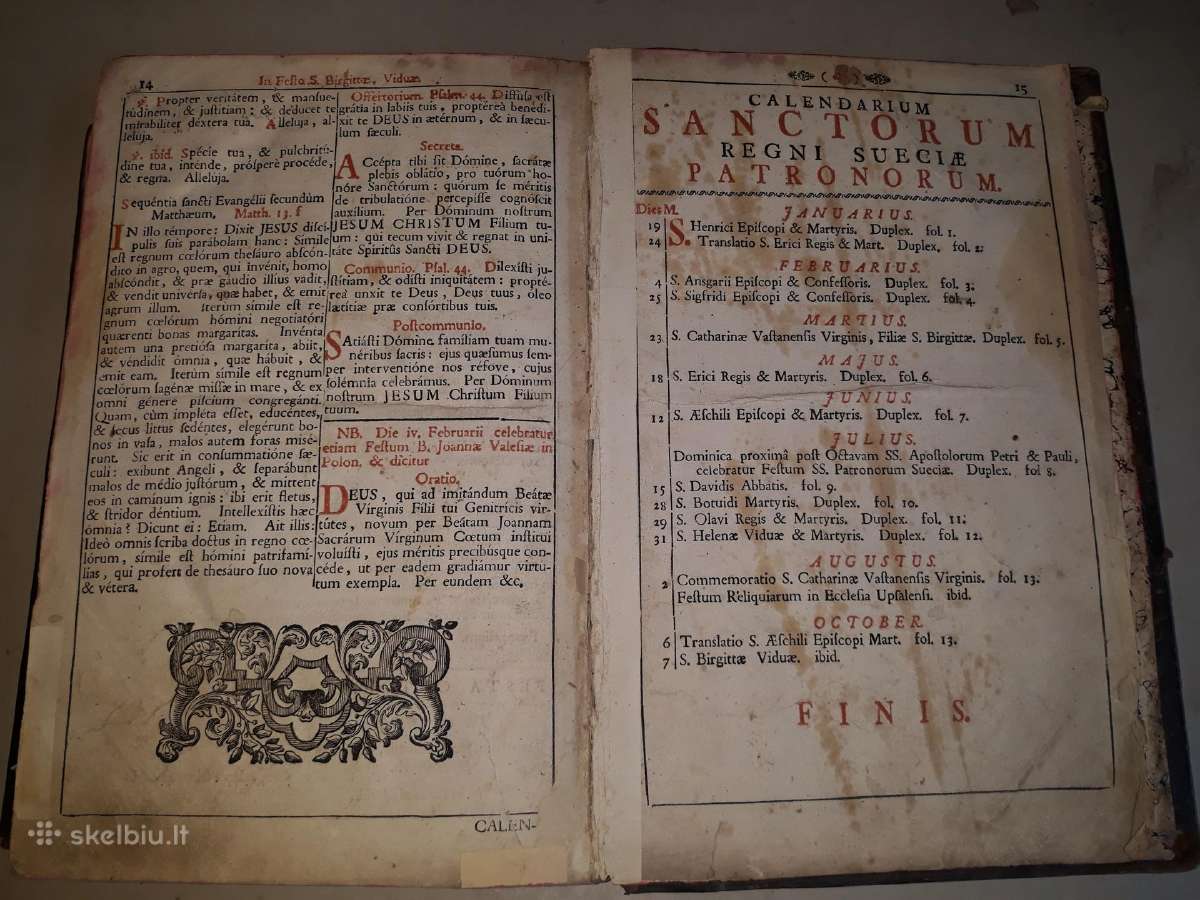 14
In Feſto S. Birgittæ, Viduæ
℣. Propter veritátem, & manſue-
túdinem, & juſtítiam: & deducet te
mirabíliter déxtera tua. Allelúja, al-
lelúja.
℣. ibid. Spécie tua, & pulchritú-
dine tua, inténde, próſperè procéde,
& regna. Allelúja.
Sequéntia ſancti Evangélii ſecundùm
Matthæum. Matth. 13. f
IN illo témpore: Dixit JESUS diſcí-
pulis ſuis parábolam hanc: Símile
eſt regnum cœlórum theſáuro abſcón-
dito in agro, quem, qui invénit, homo
abſcóndit, & præ gáudio illíus vadit,
& vendit univérſa, quæ habet, & emit
agrum illum. Iterùm ſímile eſt re-
gnum cœlórum hómini negotiatóri
quærenti bonas margarítas. Invénta
autem una pretióſa margaríta, ábiit,
& véndidit ómnia, quæ hábuit, &
emit eam. Iterùm ſímile eſt regnum
cœlórum ſagénæ miſſæ in mare, & ex
omni génere píſcium congregánti.
Quam, cùm impléta eſſet, educéntes,
& ſecus littus ſedéntes, elegérunt bo-
nos in vaſa, malos autem foras miſé-
runt. Sic erit in conſummatióne ſæ-
culi: exíbunt Angeli, & ſeparábunt
malos de médio juſtórum, & mittent
eos in camínum ignis: ibi erit fletus,
& ſtridor déntium. Intellexíſtis hæc
ómnia? Dicunt ei: Etiam. Ait illis:
Ideò omnis ſcriba doctus in regno cœ-
lórum, ſímile eſt hómini patrifamí-
lias, qui profert de theſáuro ſuo nova
& vétera.
Offertorium. Pſalm. 44. Diffúſa eſt
grátia in lábiis tuis, proptéreà benedí-
xit te DEUS in ætérnum, & in ſæcu-
lum ſæculi.
Secreta.
ACcépta tibi ſit Dómine, ſacrátæ
plebis oblátio, pro tuórum ho-
nóre Sanctórum: quorum ſe méritis
de tribulatióne percepíſſe cognóſcit
auxílium. Per Dóminum noſtrum
JESUM CHRISTUM Fílium tu-
um: qui tecum vivit & regnat in uni-
táte Spíritûs Sancti DEUS.
Communio. Pſal. 44. Dilexíſti ju-
ſtítiam, & odíſti iniquitátem: proptê-
reà unxit te Deus, Deus tuus, óleo
lætítiæ præ conſórtibus tuis.
Poſtcommunio.
SAtiáſti Dómine famíliam tuam mu-
néribus ſacris: ejus quæſumus ſem-
per interventióne nos réfove, cujus
ſolémnia celebrámus. Per Dóminum
noſtrum JESUM Chriſtum Fílium
tuum.
NB. Die iv. Februarii celebratur
etiam Feſtum B. Joannæ Valeſiæ in
Polon. & dicitur
Oratio.
DEUS, qui ad imitándum Beátæ
Vírginis Fílii tui Genitrícis vir-
tútes, novum per Beátam Joánnam
Sacrárum Vírginum Cœtum inſtítui
voluíſti, ejus méritis precibúsque con-
céde, ut per eadem gradiámur virtu-
tum exempla. Per eundem &c.
CALEN-
15
CALENDARIUM
SANCTORUM
REGNI SUECIÆ
PATRONORUM.
Dies M.
JANUARIUS.
19 S. Henrici Epiſcopi & Martyris. Duplex. fol. 1.
24 Translatio S. Erici Regis & Mart. Duplex. fol. 2.
FEBRUARIUS.
4 S. Ansgarii Epiſcopi & Confeſſoris. Duplex. fol. 3.
25 S. Sigfridi Epiſcopi & Confeſſoris. Duplex. fol. 4.
MARTIUS.
23 S. Catharinæ Vaſtanenſis Virginis, Filiæ S. Birgittæ. Duplex. fol. 5.
MAJUS.
18 S. Erici Regis & Martyris. Duplex. fol. 6.
JUNIUS.
12 S. Æſchili Epiſcopi & Martyris. Duplex. fol. 7.
JULIUS.
Dominica proximâ poſt Octavam SS. Apoſtolorum Petri & Pauli,
celebratur Feſtum SS. Patronorum Sueciæ. Duplex. fol 8.
15 S. Davidis Abbatis. fol. 9.
28 S. Botuidi Martyris. Duplex. fol. 10.
29 S. Olavi Regis & Martyris. Duplex. fol. 11.
31 S. Helenæ Viduæ & Martyris. Duplex. fol. 12.
AUGUSTUS.
2 Commemoratio S. Catharinæ Vaſtanenſis Virginis. fol. 13.
Feſtum Reliquiarum in Eccleſia Upſalenſi. ibid.
OCTOBER.
6 Translatio S. Æſchili Epiſcopi Mart. fol. 13.
7 S. Birgittæ Viduæ. ibid.
FINIS.
skelbiu.lt